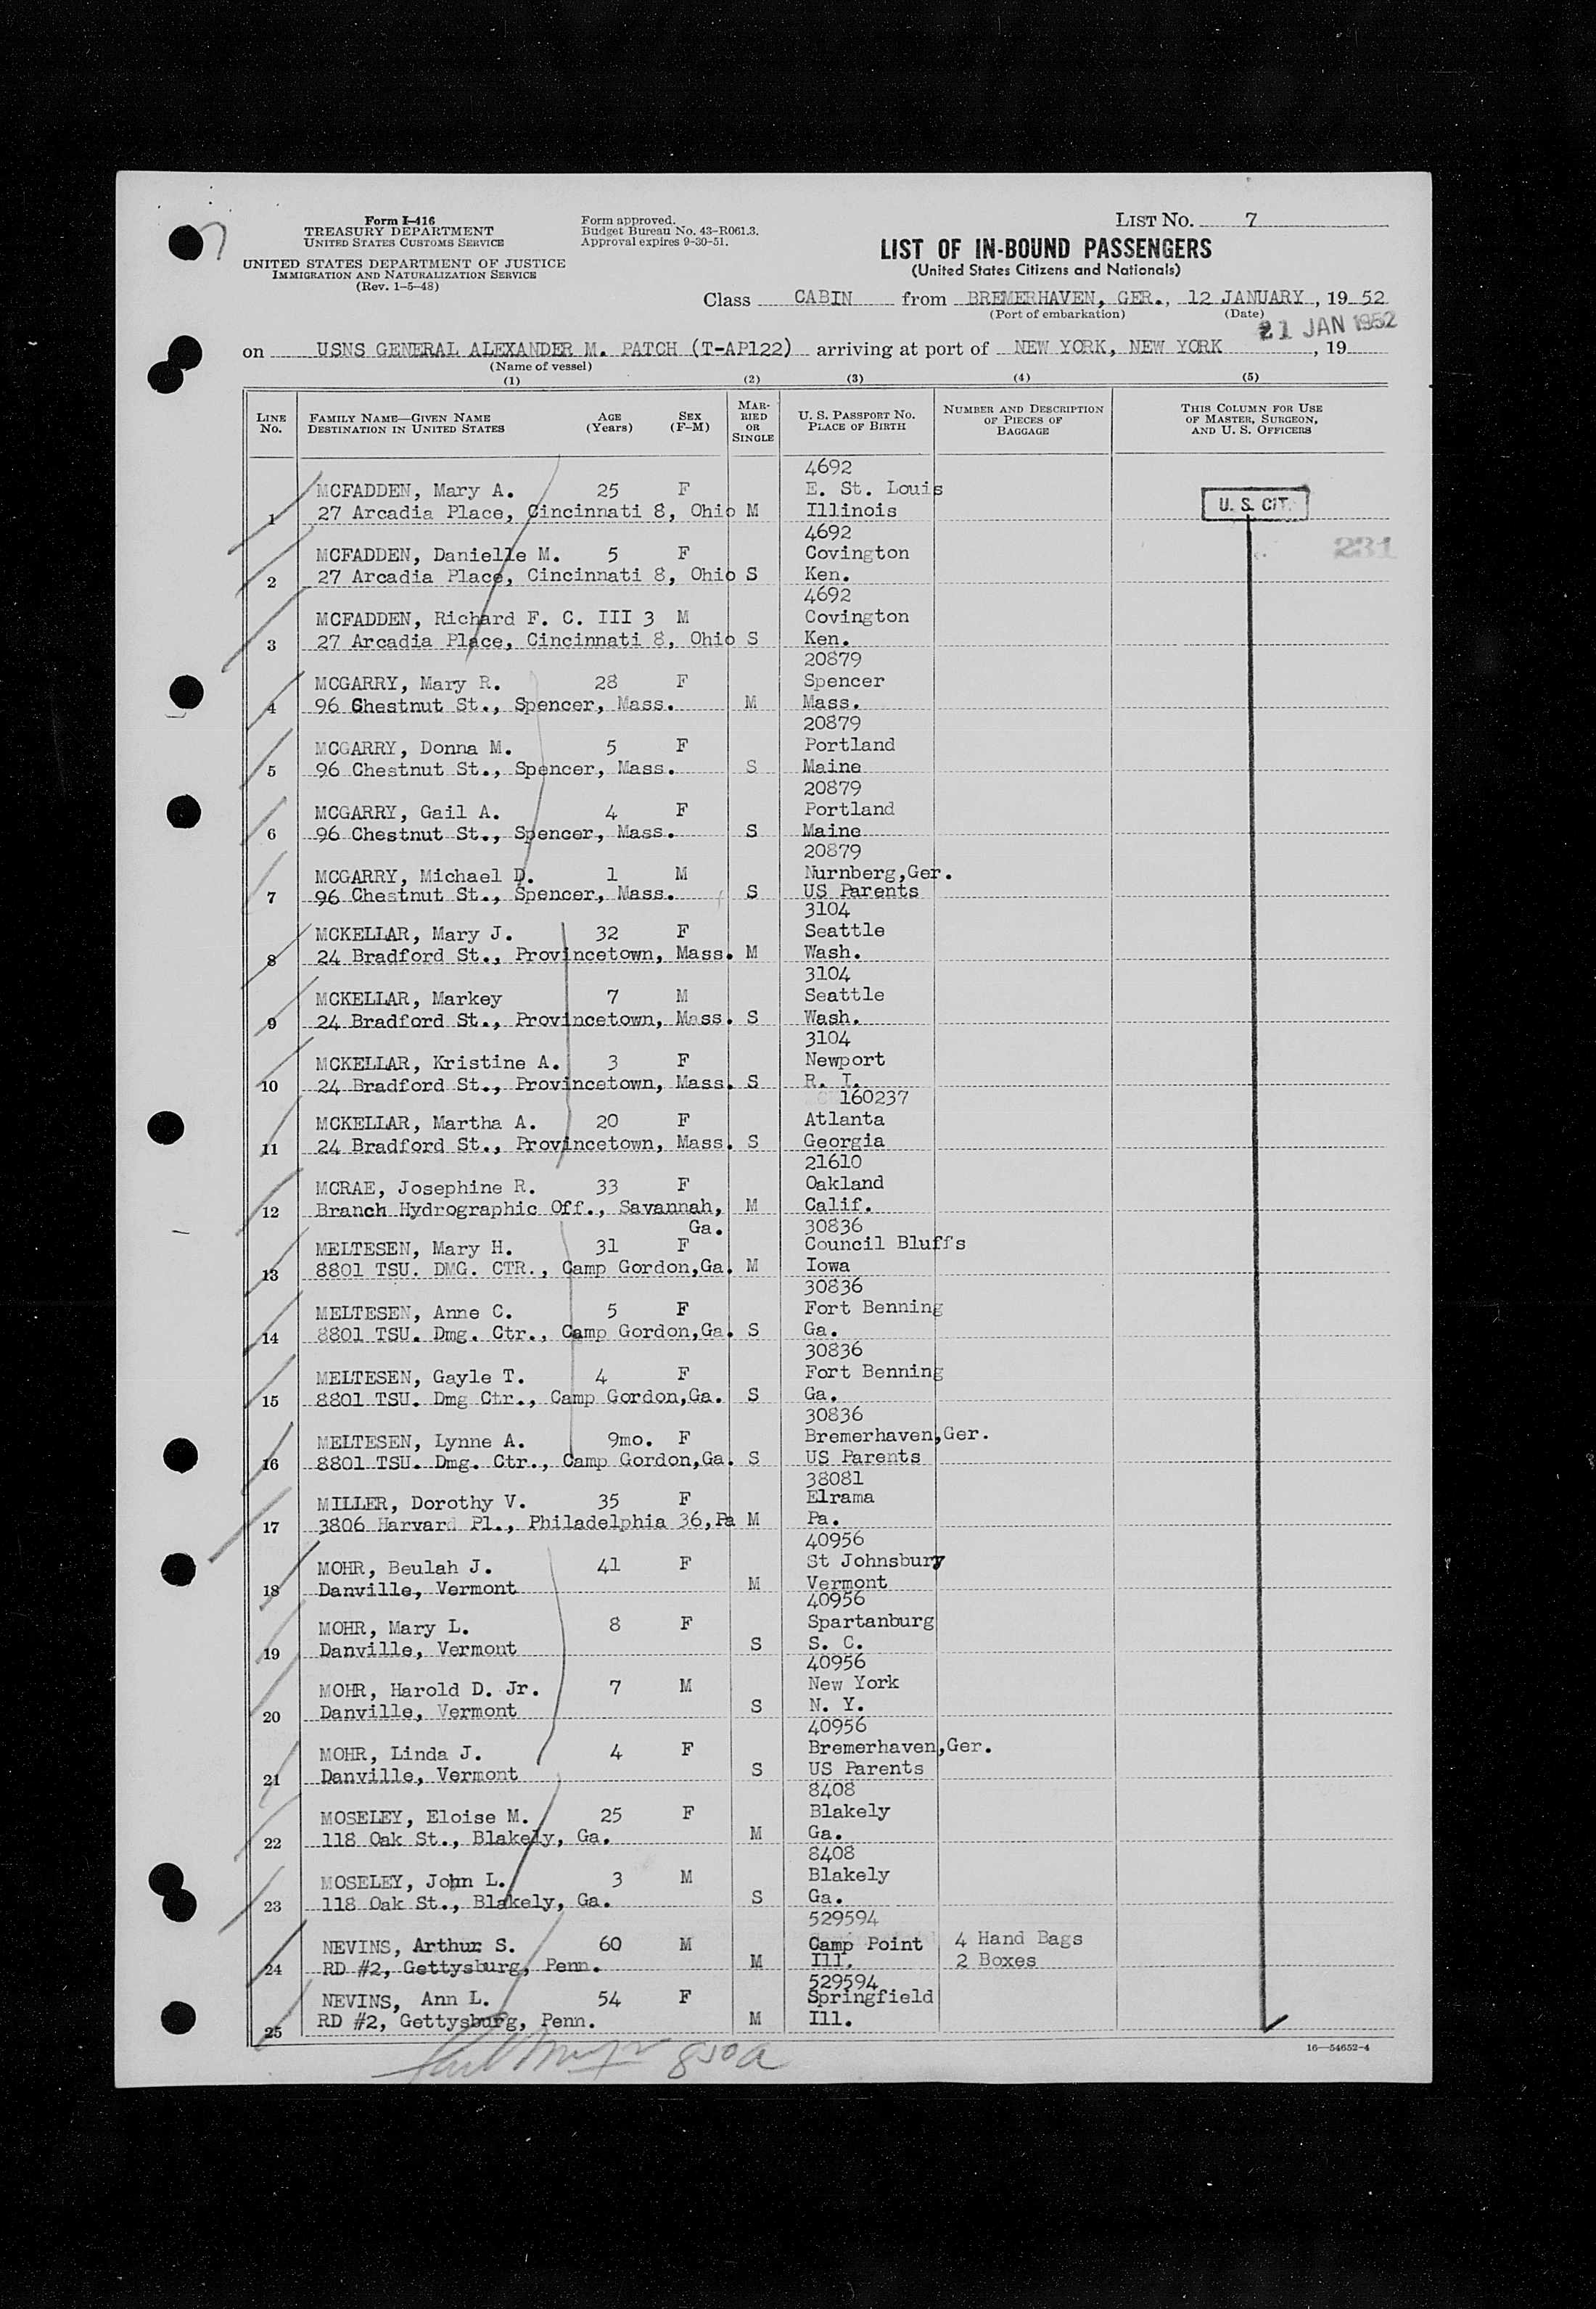 Form I-416
TREASURY DEPARTMENT
UNITED STATES CUSTOMS SERVICE
UNITED STATES DEPARTMENT OF JUSTICE
IMMIGRATION AND NATURALIZATION SERVICE
(Rev. 1-5-48)
Form approved.
Budget Bureau No. 43-R061.3.
Approval expires 9-30-51.
LIST No. 7
LIST OF IN-BOUND PASSENGERS
(United States Citizens and Nationals)
Class CABIN from BREMERHAVEN, GER., 12 JANUARY, 19 52
(Port of embarkation) (Date)
21 JAN 1952
on USNS GENERAL ALEXANDER M. PATCH (T-AP122) arriving at port of NEW YORK, NEW YORK , 19
(Name of vessel)
(1) (2) (3) (4) (5)
LINE No. FAMILY NAME—GIVEN NAME DESTINATION IN UNITED STATES AGE (Years) SEX (F-M) MARRIED OR SINGLE U. S. PASSPORT No. PLACE OF BIRTH NUMBER AND DESCRIPTION OF PIECES OF BAGGAGE THIS COLUMN FOR USE OF MASTER, SURGEON, AND U. S. OFFICERS
4692
MCFADDEN, Mary A. 25 F E. St. Louis
1 27 Arcadia Place, Cincinnati 8, Ohio M Illinois U. S. CIT.
4692
MCFADDEN, Danielle M. 5 F Covington 231
2 27 Arcadia Place, Cincinnati 8, Ohio S Ken.
4692
MCFADDEN, Richard F. C. III 3 M Covington
3 27 Arcadia Place, Cincinnati 8, Ohio S Ken.
20879
MCGARRY, Mary R. 28 F Spencer
4 96 Chestnut St., Spencer, Mass. M Mass.
20879
MCGARRY, Donna M. 5 F Portland
5 96 Chestnut St., Spencer, Mass. S Maine
20879
MCGARRY, Gail A. 4 F Portland
6 96 Chestnut St., Spencer, Mass. S Maine
20879
MCGARRY, Michael D. 1 M Nurnberg,Ger.
7 96 Chestnut St., Spencer, Mass. S US Parents
3104
MCKELLAR, Mary J. 32 F Seattle
8 24 Bradford St., Provincetown, Mass. M Wash.
3104
MCKELLAR, Markey 7 M Seattle
9 24 Bradford St., Provincetown, Mass. S Wash.
3104
MCKELLAR, Kristine A. 3 F Newport
10 24 Bradford St., Provincetown, Mass. S R. I.
160237
MCKELLAR, Martha A. 20 F Atlanta
11 24 Bradford St., Provincetown, Mass. S Georgia
21610
MCRAE, Josephine R. 33 F Oakland
12 Branch Hydrographic Off., Savannah, M Calif.
Ga. 30836
MELTESEN, Mary H. 31 F Council Bluffs
13 8801 TSU. DMG. CTR., Camp Gordon,Ga. M Iowa
30836
MELTESEN, Anne C. 5 F Fort Benning
14 8801 TSU. Dmg. Ctr., Camp Gordon,Ga. S Ga.
30836
MELTESEN, Gayle T. 4 F Fort Benning
15 8801 TSU. Dmg Ctr., Camp Gordon,Ga. S Ga.
30836
MELTESEN, Lynne A. 9mo. F Bremerhaven,Ger.
16 8801 TSU. Dmg. Ctr., Camp Gordon,Ga. S US Parents
38081
MILLER, Dorothy V. 35 F Elrama
17 3806 Harvard Pl., Philadelphia 36,Pa M Pa.
40956
MOHR, Beulah J. 41 F St Johnsbury
18 Danville, Vermont M Vermont
40956
MOHR, Mary L. 8 F Spartanburg
19 Danville, Vermont S S. C.
40956
MOHR, Harold D. Jr. 7 M New York
20 Danville, Vermont S N. Y.
40956
MOHR, Linda J. 4 F Bremerhaven,Ger.
21 Danville, Vermont S US Parents
8408
MOSELEY, Eloise M. 25 F Blakely
22 118 Oak St., Blakely, Ga. M Ga.
8408
MOSELEY, John L. 3 M Blakely
23 118 Oak St., Blakely, Ga. S Ga.
529594
NEVINS, Arthur S. 60 M Camp Point 4 Hand Bags
24 RD #2, Gettysburg, Penn. M Ill. 2 Boxes
529594
NEVINS, Ann L. 54 F Springfield
25 RD #2, Gettysburg, Penn. M Ill.
850a
16—54652-4